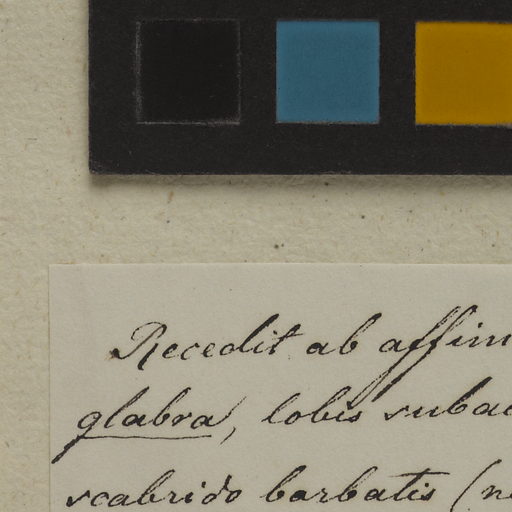 Recedit ab affin
glabra, lobis subac
scabrido barbatis (n